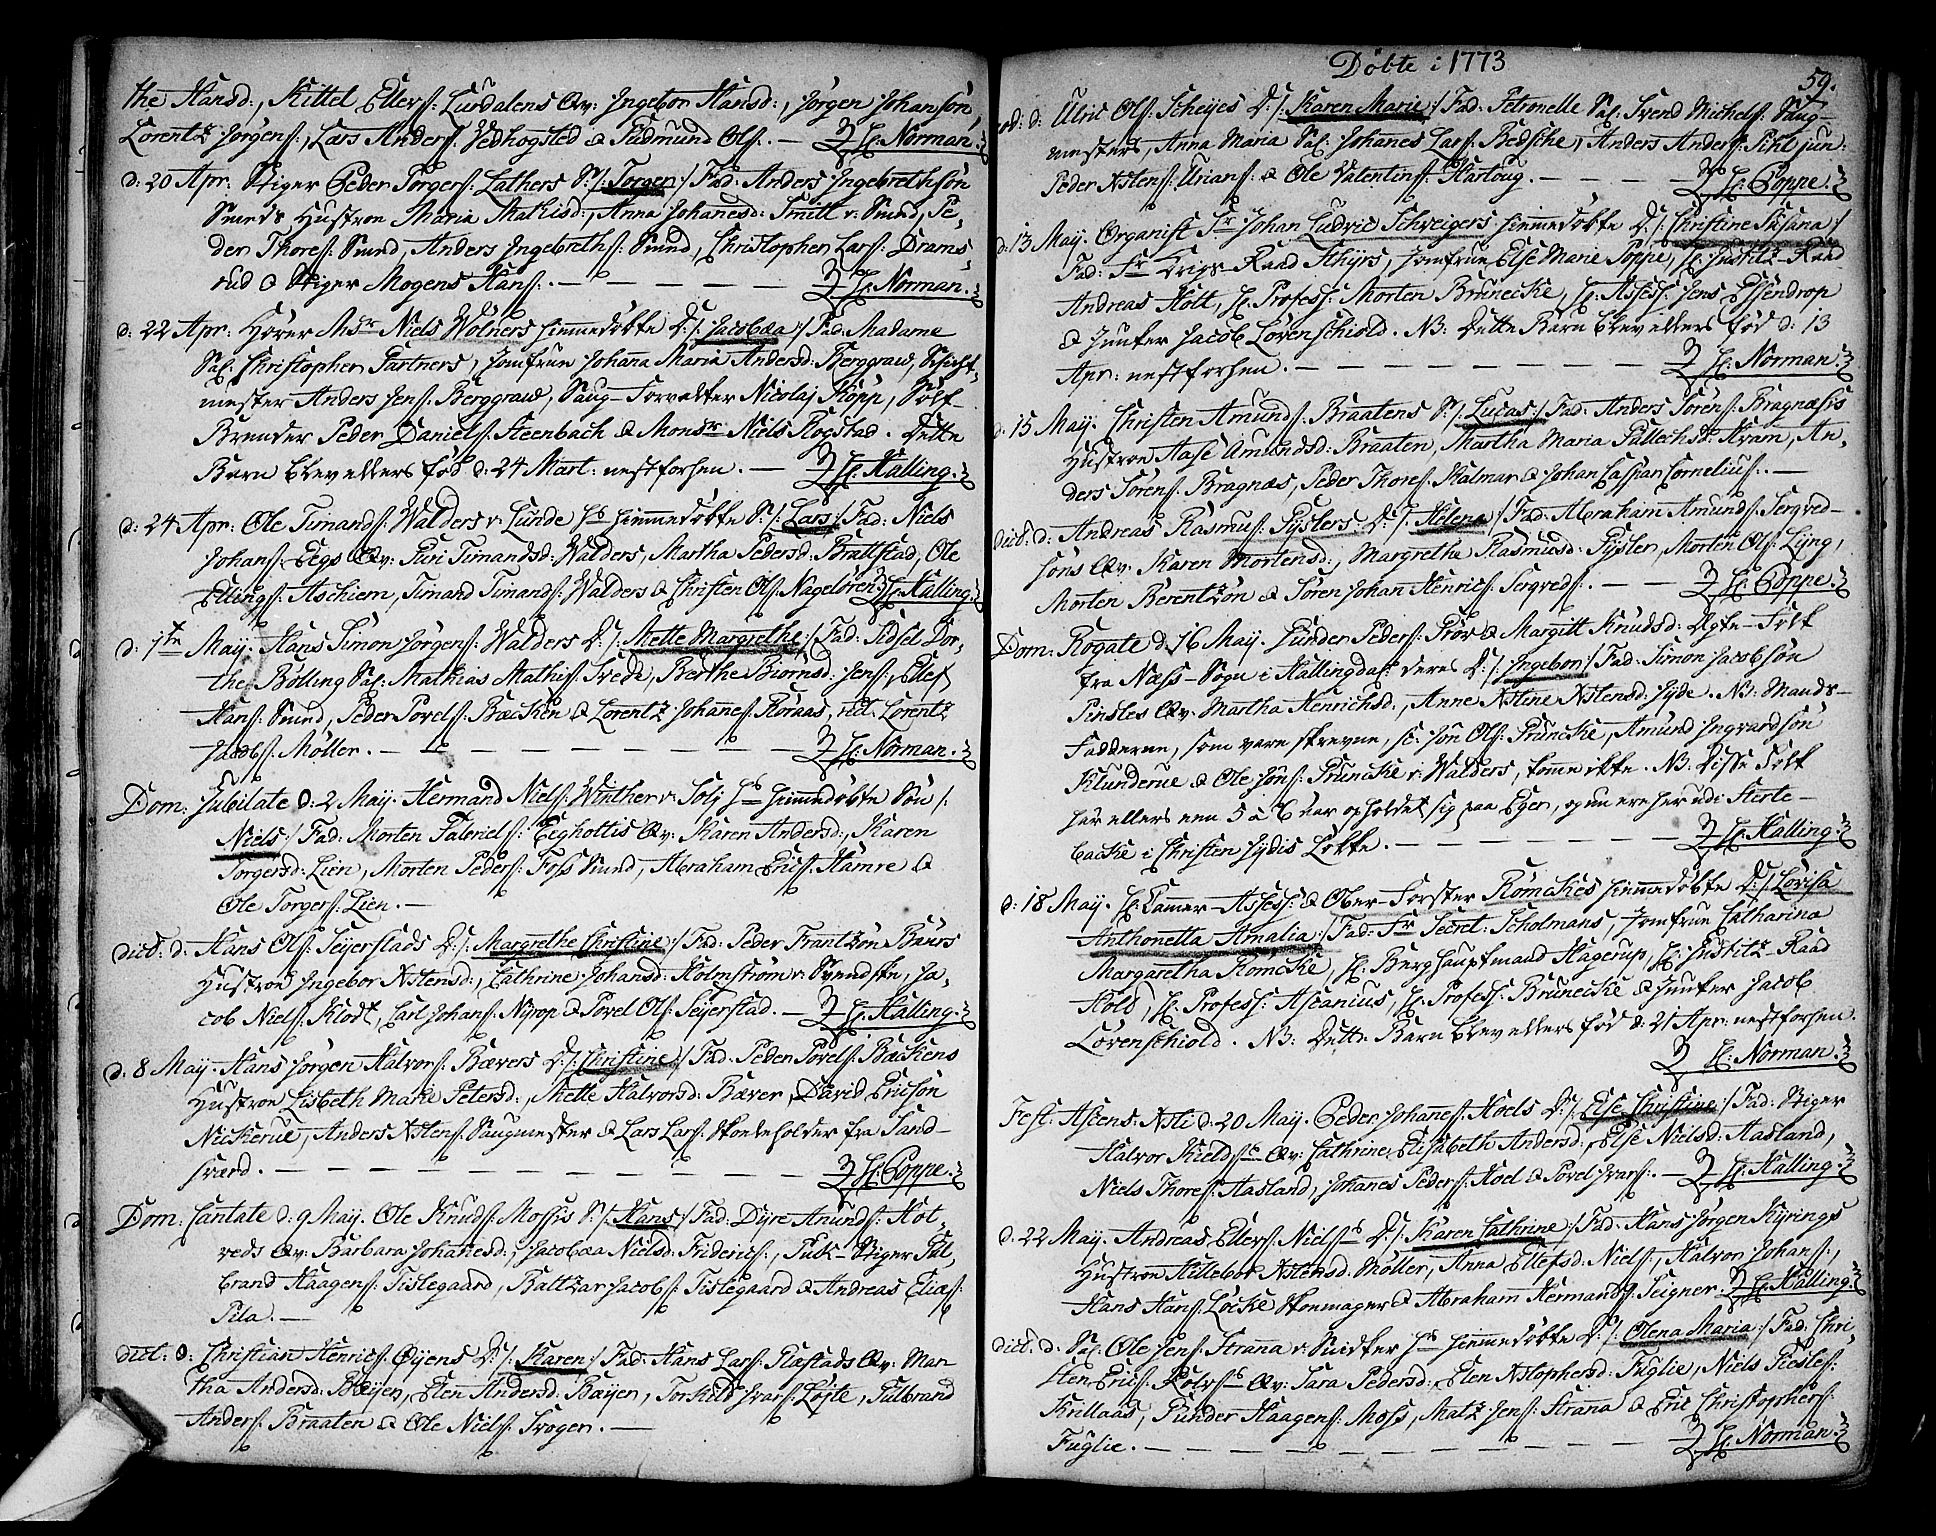 the Hansd:, Kittel Ellefs: Lurdalens Qv: Ingebor Hansd:, Jørgen Johansøn
Lorentz Jørgens:, Lars Anders: Vedhogsted & Gudmund Ols: — H: Norman.
d: 20 Apr: Stiger Peder Torgers: Lathers S: /: Torger :/ Fad: Anders Ingebrethsøn
Smeds Hustroe Maria Mathisd:, Anna Johanesd: Smitt v: Smed, Pe-
der Thores: Smed, Anders Ingebreths: Smed, Christopher Lars: Drams-
rud & Stiger Mogens Hans: — H: Norman.
d: 22 Apr: Hører Msr Niels Wølners hiemmedøbte D: /: Jacobæa :/ Fad: Madame
Sal: Christopher Gartners, Jomfrue Johana Maria Andersd: Berggraw, Schicht-
mester Anders Jens: Berggraw, Saug-Forvalter Nicolaj Kopp, Sølf-
Brender Peder Daniels: Steenbach & Monsr Niels Rogstad. Dette
Barn blev ellers fød d: 24 Mart: nestforhen. — H: Halling.
d: 24 Apr: Ole Timands: Walders v: Lunde Hs hiemmedøbte S: /: Lars :/ Fad: Niels
Johans: Eegs Qv: Guri Timandsd: Walders, Martha Pedersd: Brattstad, Ole
Ellings: Aschiem, Timand Timands: Walders & Christen Ols: Nageløren H: Halling
d: 1te May. Hans Simon Jørgens: Walders D: /: Mette Margrethe :/ Fad: Sidsel Dor-
the Bølling Sal: Mathias Mathis: Trede, Berthe Biørnsd: Jens:, Ellef
Hans: Smed, Peder Povels: Bæcken & Lorentz Johanes: Koraas, ved Lorentz
Jacobs: Møller. — H: Norman.
Dom: Jubilate d: 2 May. Hermand Niels: Winther v: Solj Hs hiemmedøbte Søn /:
Niels :/ Fad: Morten Gabriels: Egholtis Qv: Karen Andersd:, Karen
Torgersd: Lien, Morten Peders: Foss Smed, Abraham Erics: Hamre &
Ole Torgers: Lien. —
dict: d: Hans Ols: Sejerstads D: /: Margrethe Christine :/ Fad: Peder Frantzøn Baurs
Hustroe Ingebor Astensd:, Cathrine Johansd: Holmstrøm v: Svendske, Ja-
cob Niels: Klodt, Carl Johans: Nyrop & Povel Ols: Seyerstad. — H: Halling.
d: 8 May. Hans Jørgen Halvors: Bævers D: /: Christine :/ Fad: Peder Povels: Bæckens
Hustroe Lisbeth Marie Petersd:, Mette Halvorsd: Bæver, David Ericsøn
Nickerue, Anders Astens: Saugmester & Lars Lars: Skoleholder fra Sand-
sværd. — H: Poppe.
Dom: Cantate d: 9 May. Ole Knuds: Mossis S: /: Hans :/ Fad: Dyre Amunds: Hot-
veds Qv: Barbara Johanesd:, Jacobæa Nielsd: Frideric:, Puk-Stiger Gul-
brand Haagens: Tislegaard, Baltzar Jacobs: Tislegaard & Andreas Elias:
Pila. —
dict: d: Christian Henrics: Øyens D: /: Karen :/ Fad: Hans Lars: Ræstads Qv: Mar-
tha Andersd: Bæyen, Elen Andersd: Bæyen, Torkild Ivars: Løyte, Gulbrand
Anders: Braaten & Ole Niels: Troger. —
Døbte i 1773
59.
eod: d: Ulric Ols: Scheyes D: /: Karen Marie :/ Fad: Petronelle Sal: Svend Michels: Saug-
mesters, Anna Maria Sal: Johanes Lars: Bedsche, Anders Anders: Pihl jun:
Peder Astens: Urians: & Ole Valentins: Hartoug. — H: Poppe.
d: 13 May. Organist Sr Johan Ludvic Schweigers hiemmedøbte D: /: Christine Susana :/
Fad: Fr Krigs-Raad Thyrs, Jomfrue Else Marie Poppe, H: Justitz-Raad
Andreas Holt, H: Profess: Morten Brunecke, H: Assess: Jens Essendrop
& Juncker Jacob Løvenschiold. NB: Dette Barn blev ellers fød d: 13
Apr: nestforhen. — H: Norman.
d: 15 May. Christen Amunds: Braatens S: /: Lucas :/ Fad: Anders Sørens: Bragnæsis
Hustroe Aase Amundsd: Braaten, Martha Maria Pallechsd: Hram, An-
ders Sørens: Bragnæs, Peder Thores: Kalmar & Johan Caspar Cornelius:. —
dict: d: Andreas Rasmus: Gyslers D: /: Helena :/ Fad: Abraham Amunds: Sergved-
søns Qv: Karen Mortensd:, Margrethe Rasmusd: Gysler, Morten Ols: Lyng,
Morten Berentzøn & Søren Johan Henrics: Sergveds: — H: Poppe.
Dom: Rogate d: 16 May. Gunder Peders: Prøv & Margitt Knudsd: Ægte-Folk
fra Næss-Sogn i Hallingdal deres D: /: Ingebor :/ Fad: Simon Jacobsøn
Pinsles Qv: Martha Henrichsd:, Anne Astene Astensd: Jyde. NB: Mands-
Fadderne, som vare skrevne, sc: Jon Ols: Pruncke, Amund Ingvardsøn
Klunderue & Ole Jøns: Pruncke v: Walders, komme ikke. NB: Disse Folk
har ellers een 5 à 6 aar opholdet sig paa Eger, og nu ere her udi Sterte-
backe i Christen Jydis Løkke. — H: Halling.
d: 18 May. H: Camer-Assess: & Ober-Forster Rømckes hiemmedøbte D: /: Lovisa
Anthonetta Amalia :/ Fad: Fr Secret: Scholmans, Jomfrue Catharina
Margaretha Romcke, H: Berghauptmand Hagerup, H: Justitz-Raad
Hold, H: Profess: Ascanius, H: Profess: Brunecke & Juncker Jacob
Løvenschiold. NB: Dette Barn blev ellers fød d: 21 Apr: nestforhen.
H: Norman.
Fest: Ascens: Xsti d: 20 May. Peder Johanes: Hoels D: /: Else Christine :/ Fad: Stiger
Halvor Kields:s Qv: Cathrine Elisabeth Andersd:, Else Nielsd: Aasland,
Niels Thores: Aasland, Johanes Peders: Hoel & Povel Ivars: — H: Halling.
d: 22 May. Andreas Ellefs: Nielss D: /: Karen Cathrine :/ Fad: Hans Jørgen Kyrings
Hustroe Hillebor Astensd: Møller, Anna Ellefsd: Niels:, Halvor Johans:,
Hans Hans: Løcke Skoemager & Abraham Hermands: Seigner. H: Halling.
dict: d: Sal: Ole Jens: Strana v: Snidker Hs hiemmedøbte D: /: Olena Maria :/ Fad: Chri-
sten Erics: Rolvss Qv: Sara Pedersd:, Elen Astophersd: Fuglie, Niels Giesles:
Krillaas, Gunder Haagens: Moss, Matz Jens: Strana & Eric Christophers:
Fuglie. — H: Norman.